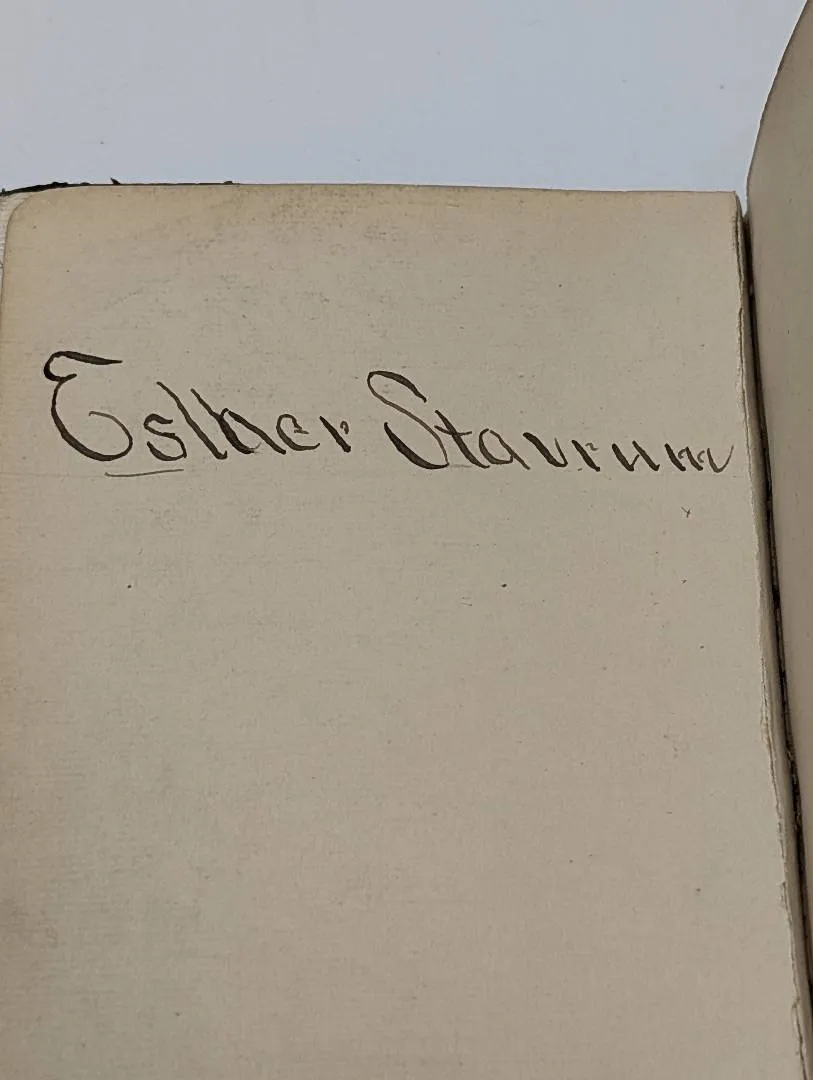 Esther Stavrum